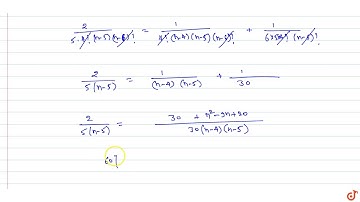 2 / 5·4!(n-5)(n-6)! = 1 / 4!(n-4)(n-5)(n-6)! + 1 / (n-6)!
2 / 5(n-5) = 1 / (n-4)(n-5) + 1 / 30
2 / 5(n-5) = 30 + n²-9n+20 / 30(n-4)(n-5)
60